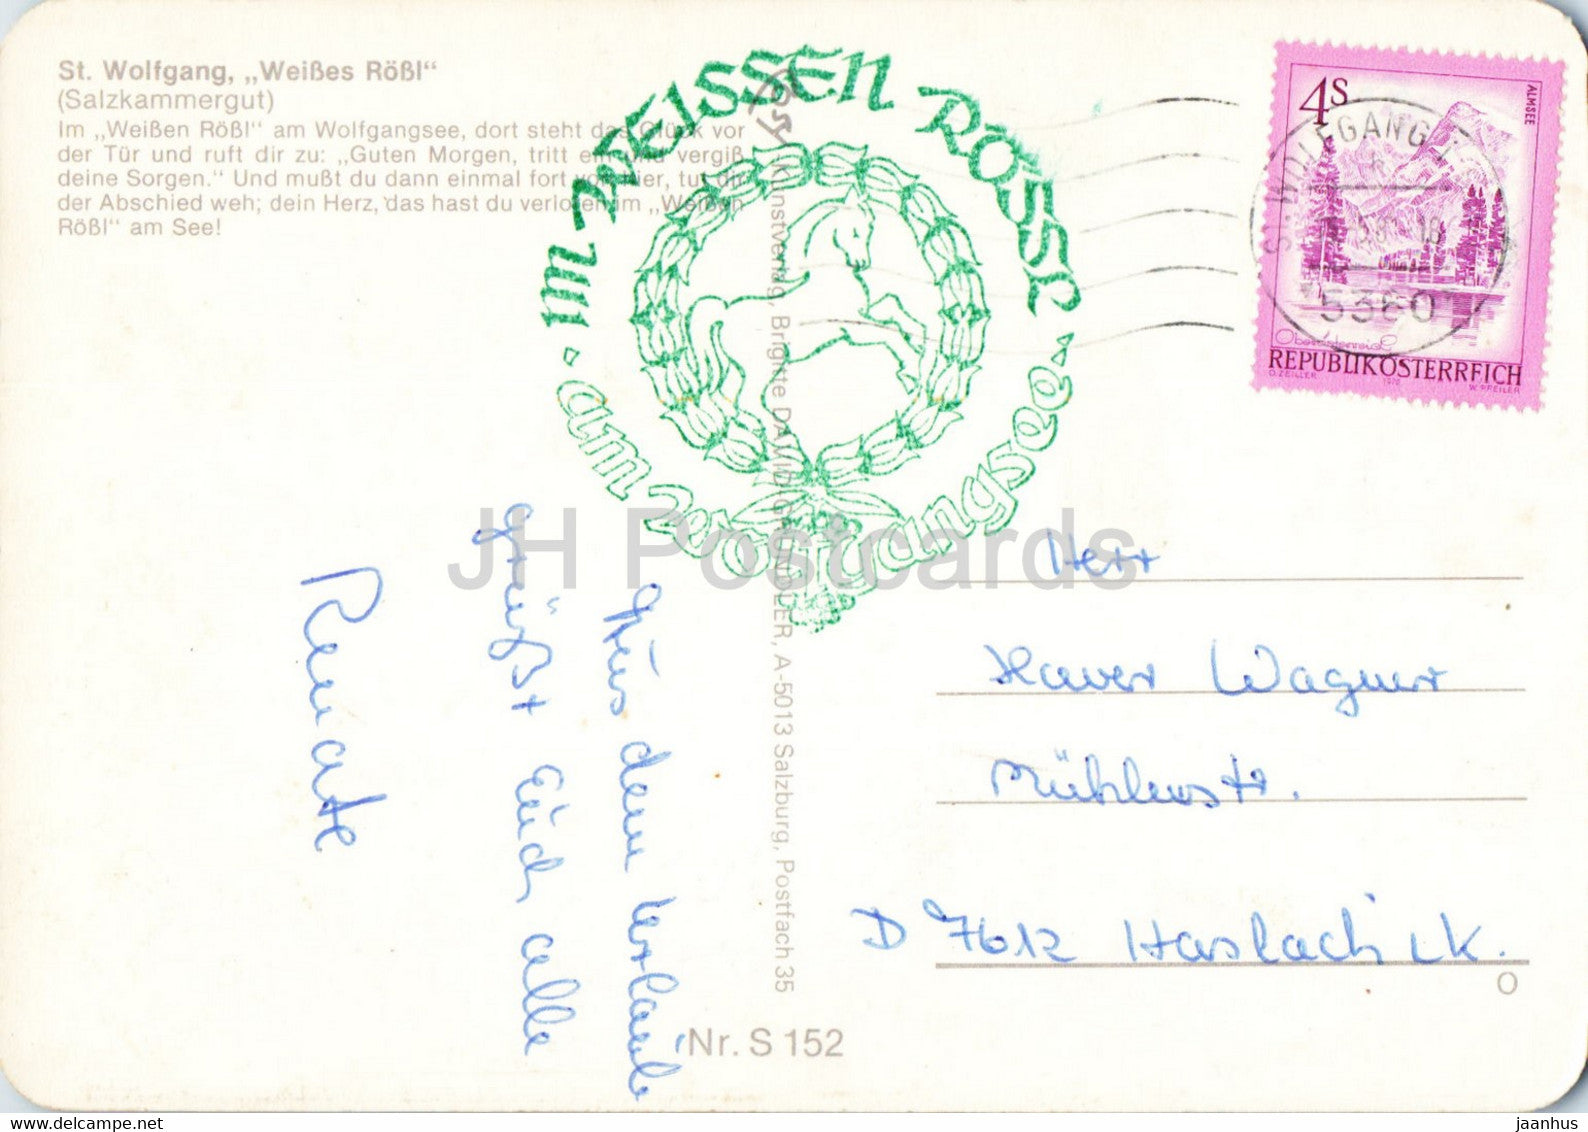 St. Wolfgang, „Weißes Rößl“
(Salzkammergut)
Im „Weißen Rößl“ am Wolfgangsee, dort steht das Glück vor
der Tür und ruft dir zu: „Guten Morgen, tritt ein und vergiß
deine Sorgen.“ Und mußt du dann einmal fort von hier, tut dir
der Abschied weh; dein Herz, das hast du verloren im „Weißen
Rößl“ am See!
IM WEISSEN RÖSSL
am Wolfgangsee
4S
ALMSEE
Oberösterreich
REPUBLIK ÖSTERREICH
O. ZEILLER 1975 W. PFEILER
WOLFGANG
5360
Kunstverlag, Brigitte DAVID-GRUNDNER, A-5013 Salzburg, Postfach 35
Aus dem Urlaub
grüßt Euch alle
Renate
Herr
Xaver Wagner
Mühlenstr.
D 7612 Haslach i.K.
O
Nr. S 152
JH Postcards
jaanhus